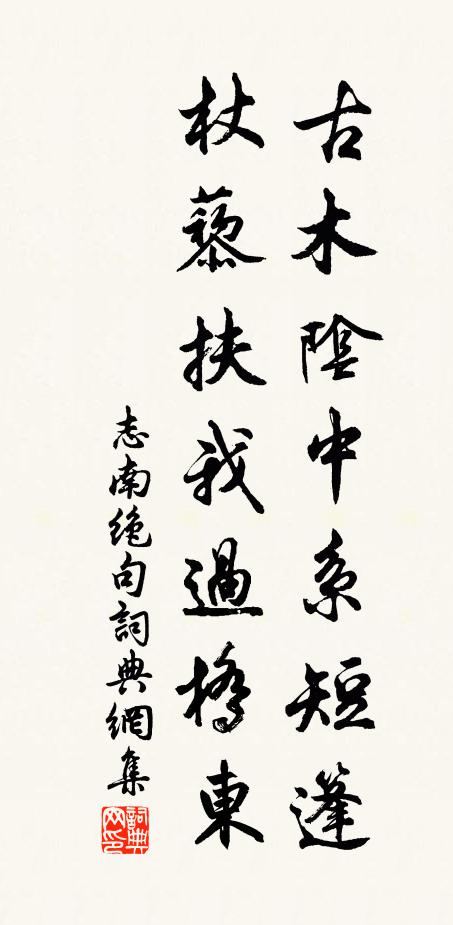 古木陰中系短篷
杖藜扶我過橋東
志南絕句詞典網集
詞典网印